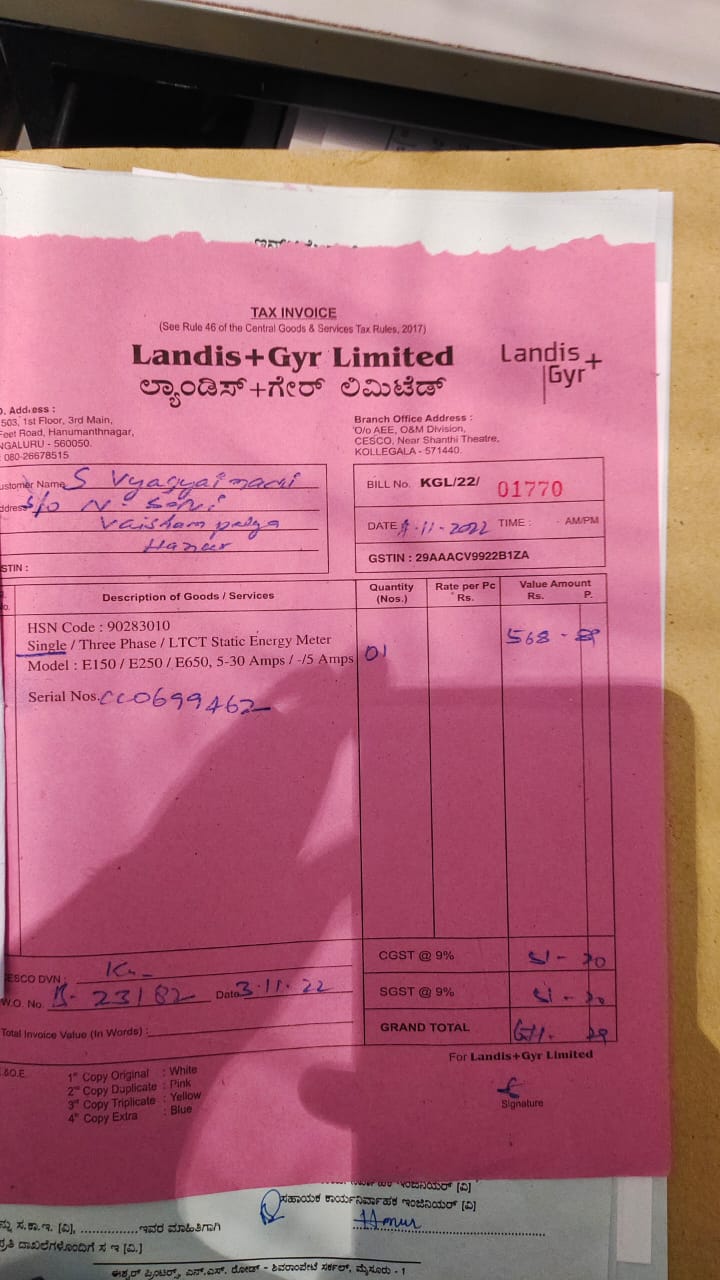 TAX INVOICE
(See Rule 46 of the Central Goods & Services Tax Rules, 2017)
Landis+Gyr Limited
ಲ್ಯಾಂಡಿಸ್+ಗೇರ್ ಲಿಮಿಟೆಡ್
Landis+
Gyr
. Address :
503, 1st Floor, 3rd Main,
Feet Road, Hanumanthnagar,
NGALURU - 560050.
: 080-26678515
Branch Office Address :
O/o AEE, O&M Division,
CESCO, Near Shanthi Theatre,
KOLLEGALA - 571440.
ustomer Name S
ddress S/o N.
Hanur
STIN :
BILL No. KGL/22/ 01770
DATE -11-2022 TIME : AM/PM
GSTIN : 29AAACV9922B1ZA
o.
Description of Goods / Services
Quantity (Nos.)
Rate per Pc Rs.
Value Amount Rs. P.
HSN Code : 90283010
Single / Three Phase / LTCT Static Energy Meter
Model : E150 / E250 / E650, 5-30 Amps / -/5 Amps 01
568 -
Serial Nos. CC0699462
CGST @ 9%
SGST @ 9%
GRAND TOTAL
ESCO DVN :
W.O. No. B- 23182 Date 3-11-22
Total Invoice Value (In Words) :
For Landis+Gyr Limited
.&O.E.
1st Copy Original : White
2nd Copy Duplicate : Pink
3rd Copy Triplicate : Yellow
4th Copy Extra : Blue
Signature
ಸಹಾಯಕ ಕಾರ್ಯನಿರ್ವಾಹಕ ಇಂಜಿನಿಯರ್ [ವಿ]
Hanur
ನ್ನು ಸ.ಕಾ.ಇ. [ವಿ], ..............ಇವರ ಮಾಹಿತಿಗಾಗಿ
ಪ್ರತಿ ದಾಖಲೆಗಳೊಂದಿಗೆ ಸ ಇ [ವಿ.]
ಈಶ್ವರ್ ಪ್ರಿಂಟರ್ಸ್, ಎನ್.ಎಸ್. ರೋಡ್ - ಶಿವರಾಂಪೇಟೆ ಸರ್ಕಲ್, ಮೈಸೂರು - 1